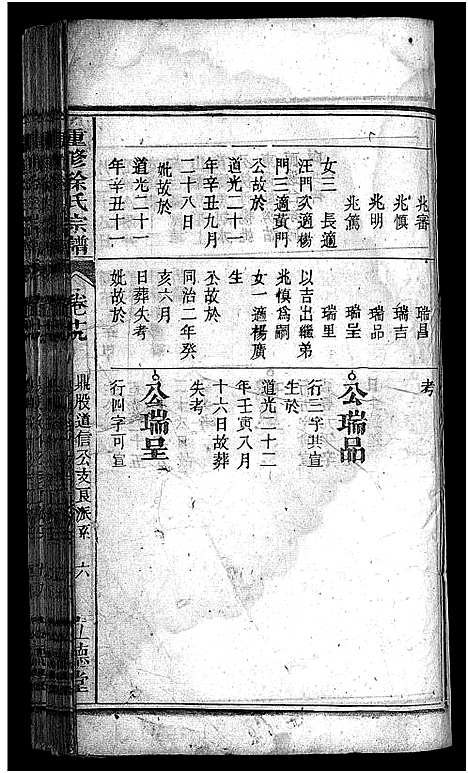 兆審
兆慎
兆明
兆篤
女三 長適
汪門次適楊
門三適黃門
公故於
道光二十一
年辛丑九月
二十八日
妣故於
道光二十一
年辛丑十一
瑞昌
瑞吉
瑞品
瑞呈
瑞里
以吉出繼弟
兆慎爲嗣
女一適楊廣
生
公故於
同治二年癸
亥六月
日葬失考
妣故於
考
公瑞品
行三字其宣
生於
道光二十二
年壬寅八月
十六日故葬
失考
公瑞呈
行四字可宣
重修徐氏宗譜
卷之
鼎股道信公支良派系
六
德堂